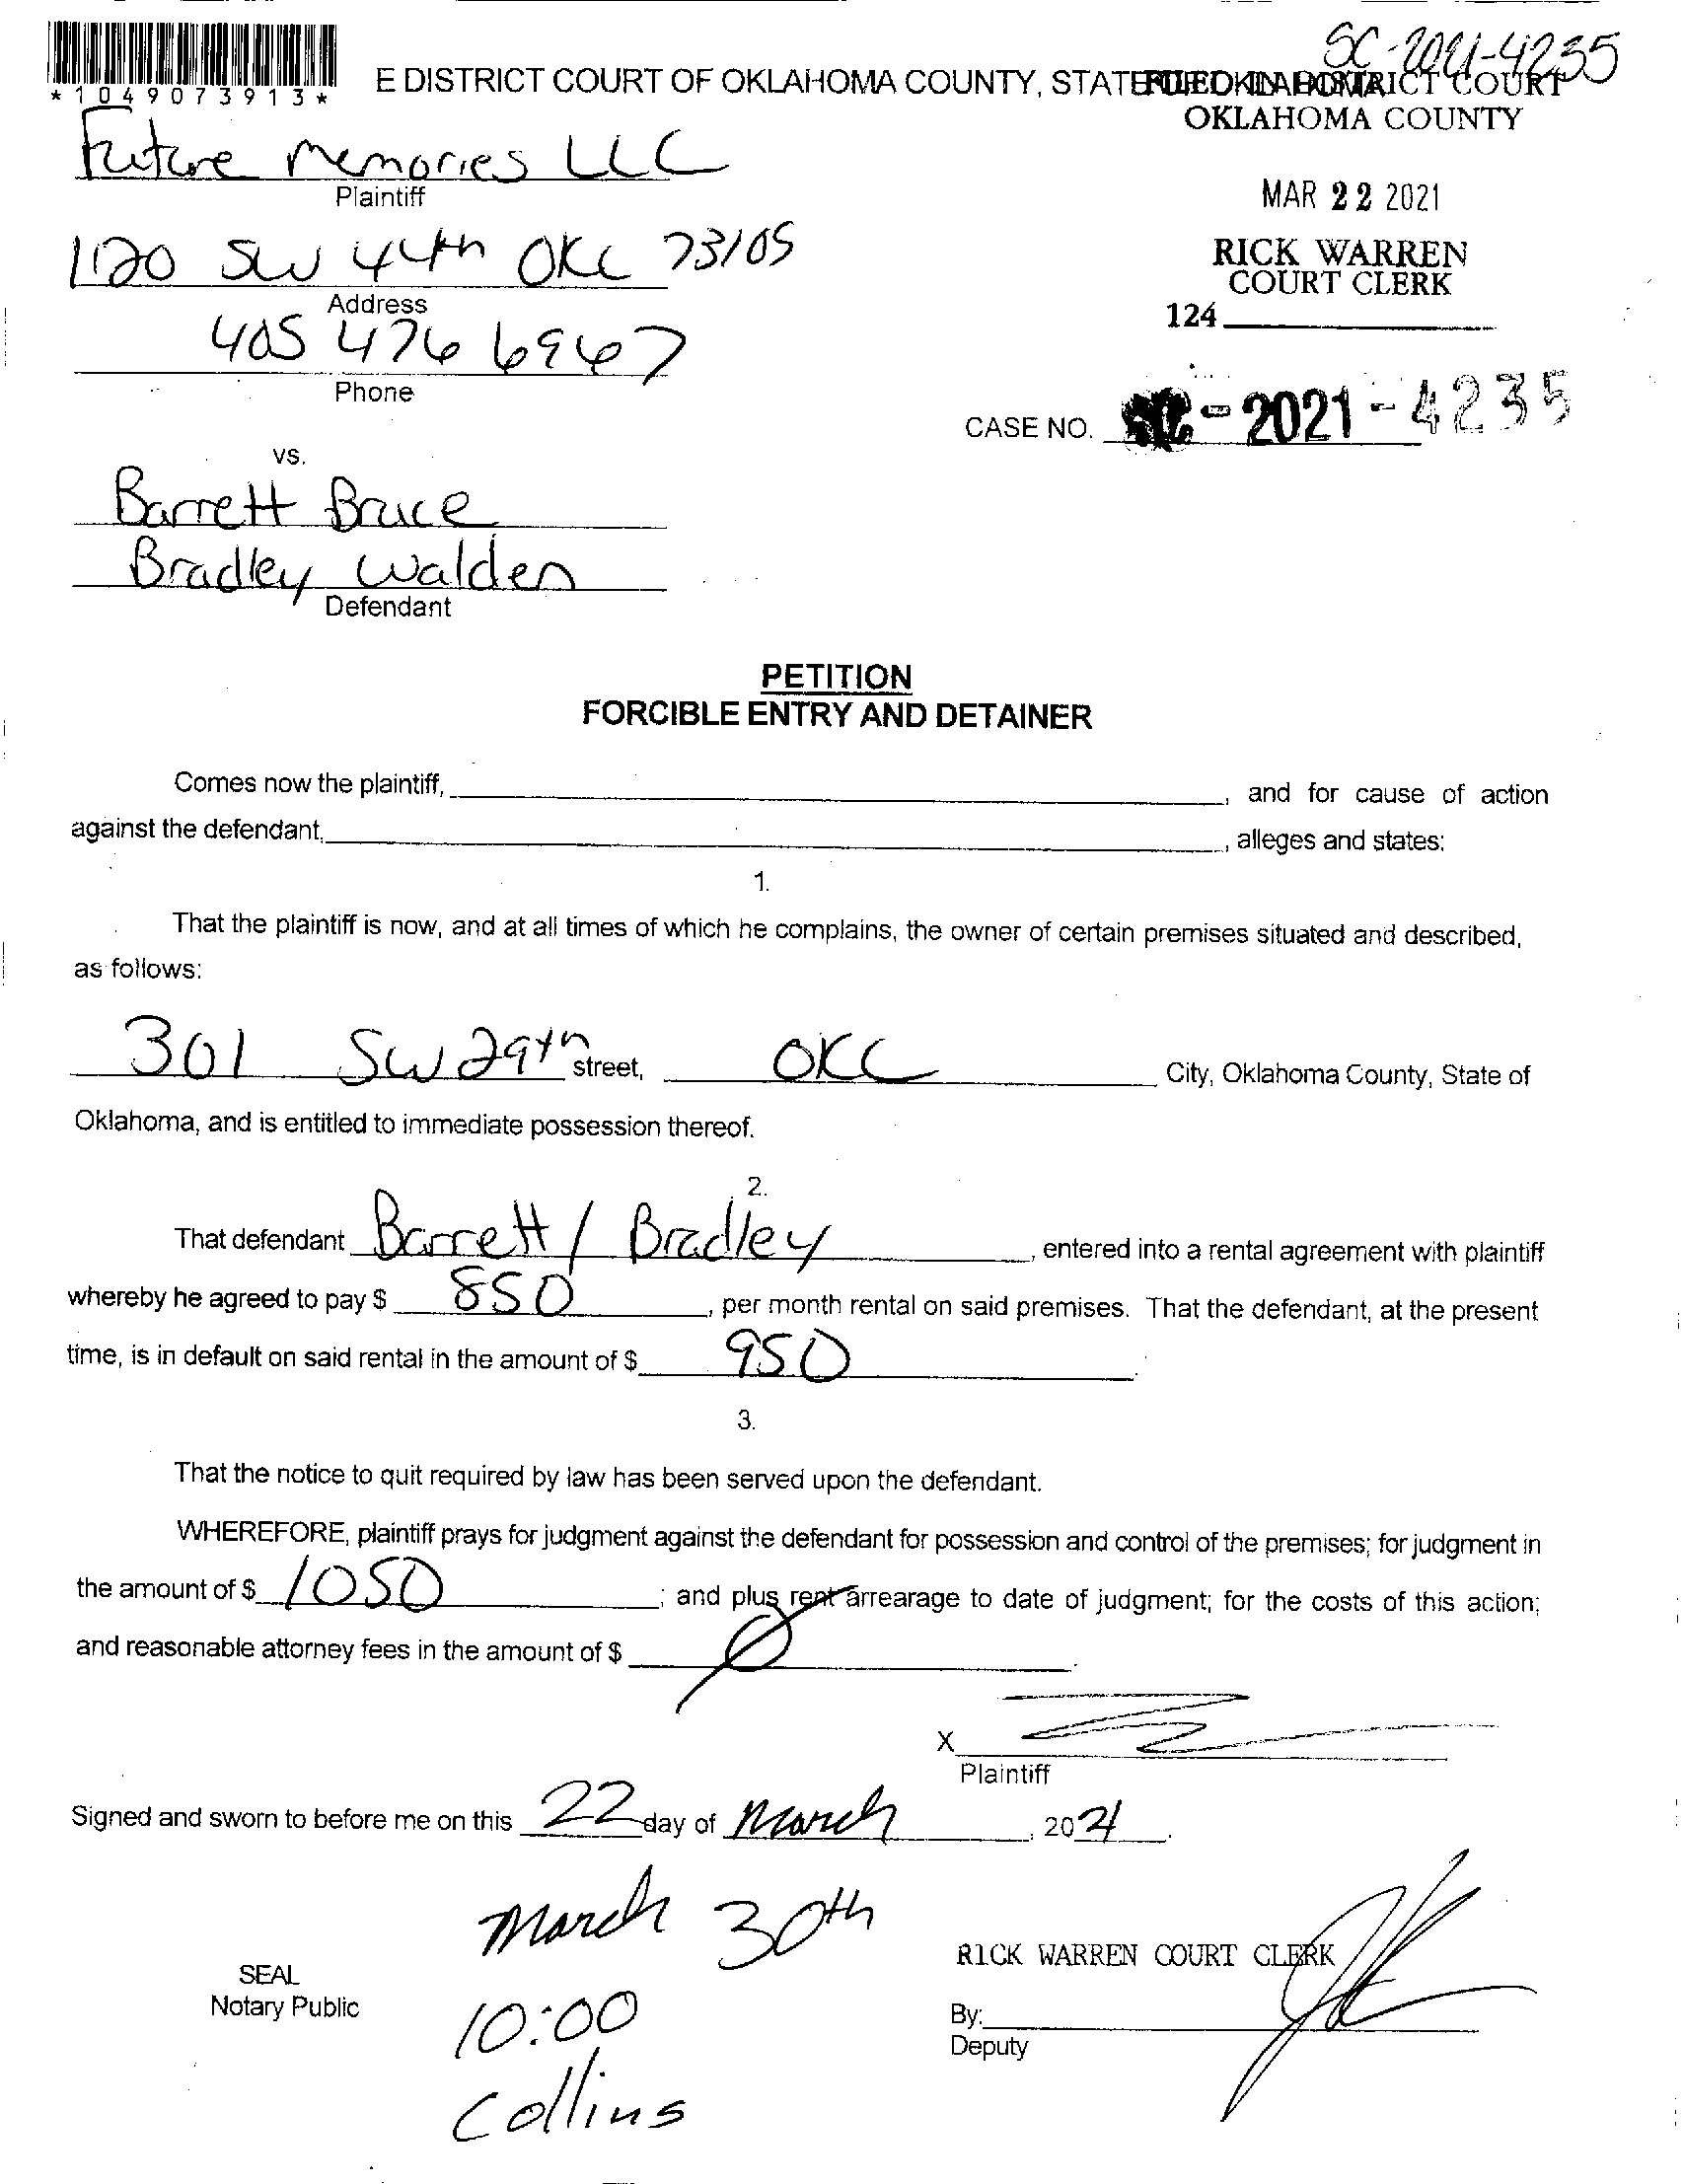 SC-2021-4235
*1049073913*
E DISTRICT COURT OF OKLAHOMA COUNTY, STATE OF OKLAHOMA
FILED IN DISTRICT COURT
OKLAHOMA COUNTY
Future Memories LLC
Plaintiff
MAR 22 2021
1120 SW 44th OKC 73105
RICK WARREN
COURT CLERK
Address
124
405 476 6967
Phone
CASE NO. SC-2021-4235
vs.
Barrett Bruce
Bradley Walden
Defendant
PETITION
FORCIBLE ENTRY AND DETAINER
Comes now the plaintiff, , and for cause of action
against the defendant, , alleges and states:
1.
That the plaintiff is now, and at all times of which he complains, the owner of certain premises situated and described,
as follows:
301 SW 29th street, OKC City, Oklahoma County, State of
Oklahoma, and is entitled to immediate possession thereof.
2.
That defendant Barrett / Bradley , entered into a rental agreement with plaintiff
whereby he agreed to pay $ 850 , per month rental on said premises. That the defendant, at the present
time, is in default on said rental in the amount of $ 950 .
3.
That the notice to quit required by law has been served upon the defendant.
WHEREFORE, plaintiff prays for judgment against the defendant for possession and control of the premises; for judgment in
the amount of $ 1050 ; and plus rent arrearage to date of judgment; for the costs of this action;
and reasonable attorney fees in the amount of $ Ø .
X
Plaintiff
Signed and sworn to before me on this 22 day of March , 2021 .
March 30th
RICK WARREN COURT CLERK
SEAL
Notary Public
10:00
By:
Deputy
Collins